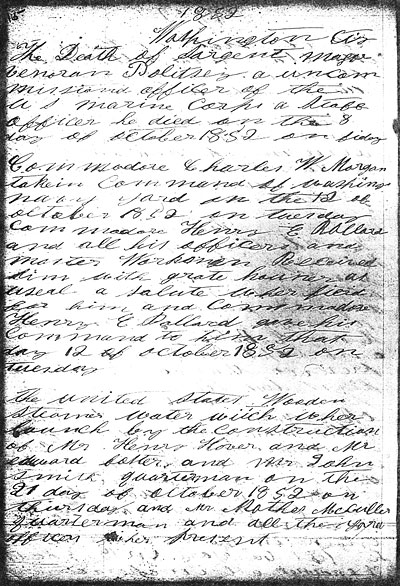 1852
Washington City
the Death of Sargent Major
Venoran Bolitsez a uncom
missiond officer of the
U S marine Corps a Staff
officer he died on the 8
day of october 1852 on friday
Commodore Charles W. Morgan
taken Command of washing
navy yard on the 12 of
october 1852 on tuesday
Commodore Henry E Ballard
and all his officers and
master Workmen Received
him with grate honners as
useal a Salute wher fierd
for him and Commodore
Henry E Ballard gave his
Command to him that
day 12 of october 1852 on
tuesday
the united states Wooden
Steamer water witch wher
launch by the Construction
of Mr Henry Hover and Mr
edward and mr John
quarterman on the
21 day of october 1852 on
thursday and Mr
quarterman and all the yard
officers wher present